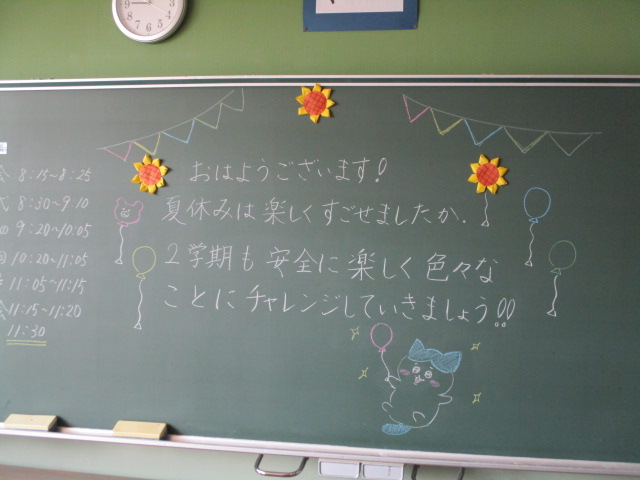 おはようございます!
夏休みは楽しくすごせましたか.
2学期も安全に楽しく色々な
ことにチャレンジしていきましょう!!
8:15~8:25
8:30~9:10
9:20~10:05
10:20~11:05
11:05~11:15
11:15~11:20
11:30